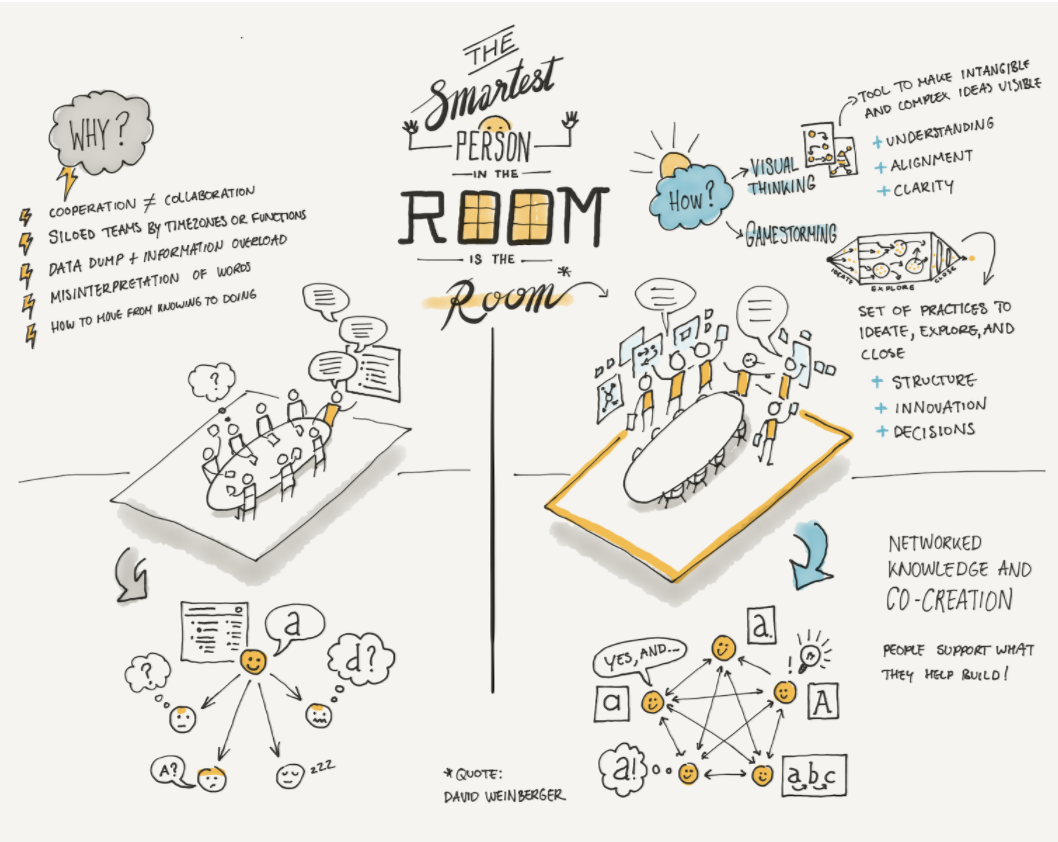 THE
Smartest
PERSON
IN THE
ROOM
IS THE
Room *
WHY?
COOPERATION ≠ COLLABORATION
SILOED TEAMS BY TIMEZONES OR FUNCTIONS
DATA DUMP + INFORMATION OVERLOAD
MISINTERPRETATION OF WORDS
HOW TO MOVE FROM KNOWING TO DOING
?
a
?
d?
A?
zzz
How?
VISUAL
THINKING
TOOL TO MAKE INTANGIBLE
AND COMPLEX IDEAS VISIBLE
+ UNDERSTANDING
+ ALIGNMENT
+ CLARITY
GAMESTORMING
IDEATE
EXPLORE
CLOSE
SET OF PRACTICES TO
IDEATE, EXPLORE, AND
CLOSE
+ STRUCTURE
+ INNOVATION
+ DECISIONS
NETWORKED
KNOWLEDGE AND
CO-CREATION
PEOPLE SUPPORT WHAT
THEY HELP BUILD!
a
YES, AND...
!
a
A
a!
abc
* QUOTE:
DAVID WEINBERGER